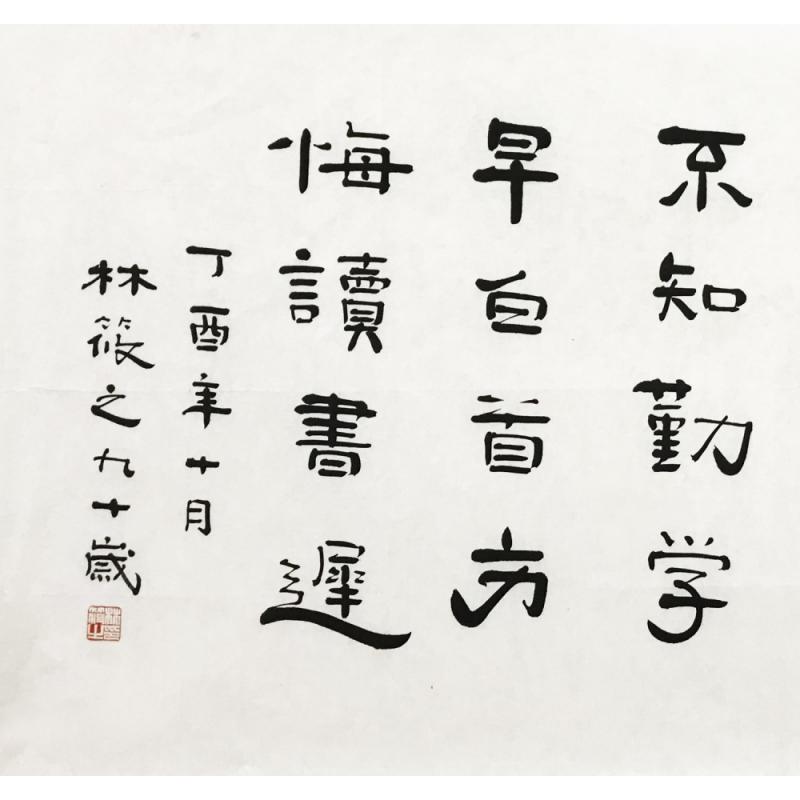 不知勤学
早白首方
悔讀書遲
丁酉年十月
林筱之九十歲